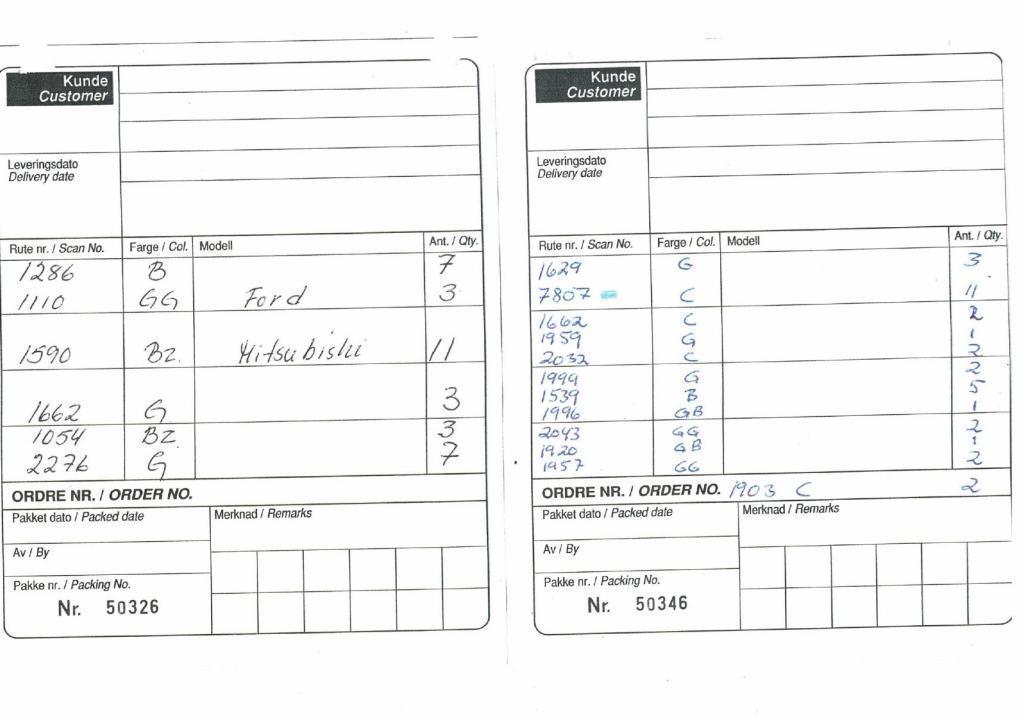 Kunde
Customer
Leveringsdato
Delivery date
Rute nr. / Scan No. Farge / Col. Modell Ant. / Qty.
1286 B 7
1110 GG Ford 3
1590 Bz. Mitsubishi 11
1662 G 3
1054 BZ 3
2276 G 7
ORDRE NR. / ORDER NO.
Pakket dato / Packed date Merknad / Remarks
Av / By
Pakke nr. / Packing No.
Nr. 50326
Kunde
Customer
Leveringsdato
Delivery date
Rute nr. / Scan No. Farge / Col. Modell Ant. / Qty.
1629 G 3
7807 C 11
1662 C 2
1959 G 1
2032 C 2
1999 G 2
1539 B 5
1996 GB 1
2043 GG 2
1920 GB 1
1957 GG 2
ORDRE NR. / ORDER NO. 1903 C 2
Pakket dato / Packed date Merknad / Remarks
Av / By
Pakke nr. / Packing No.
Nr. 50346